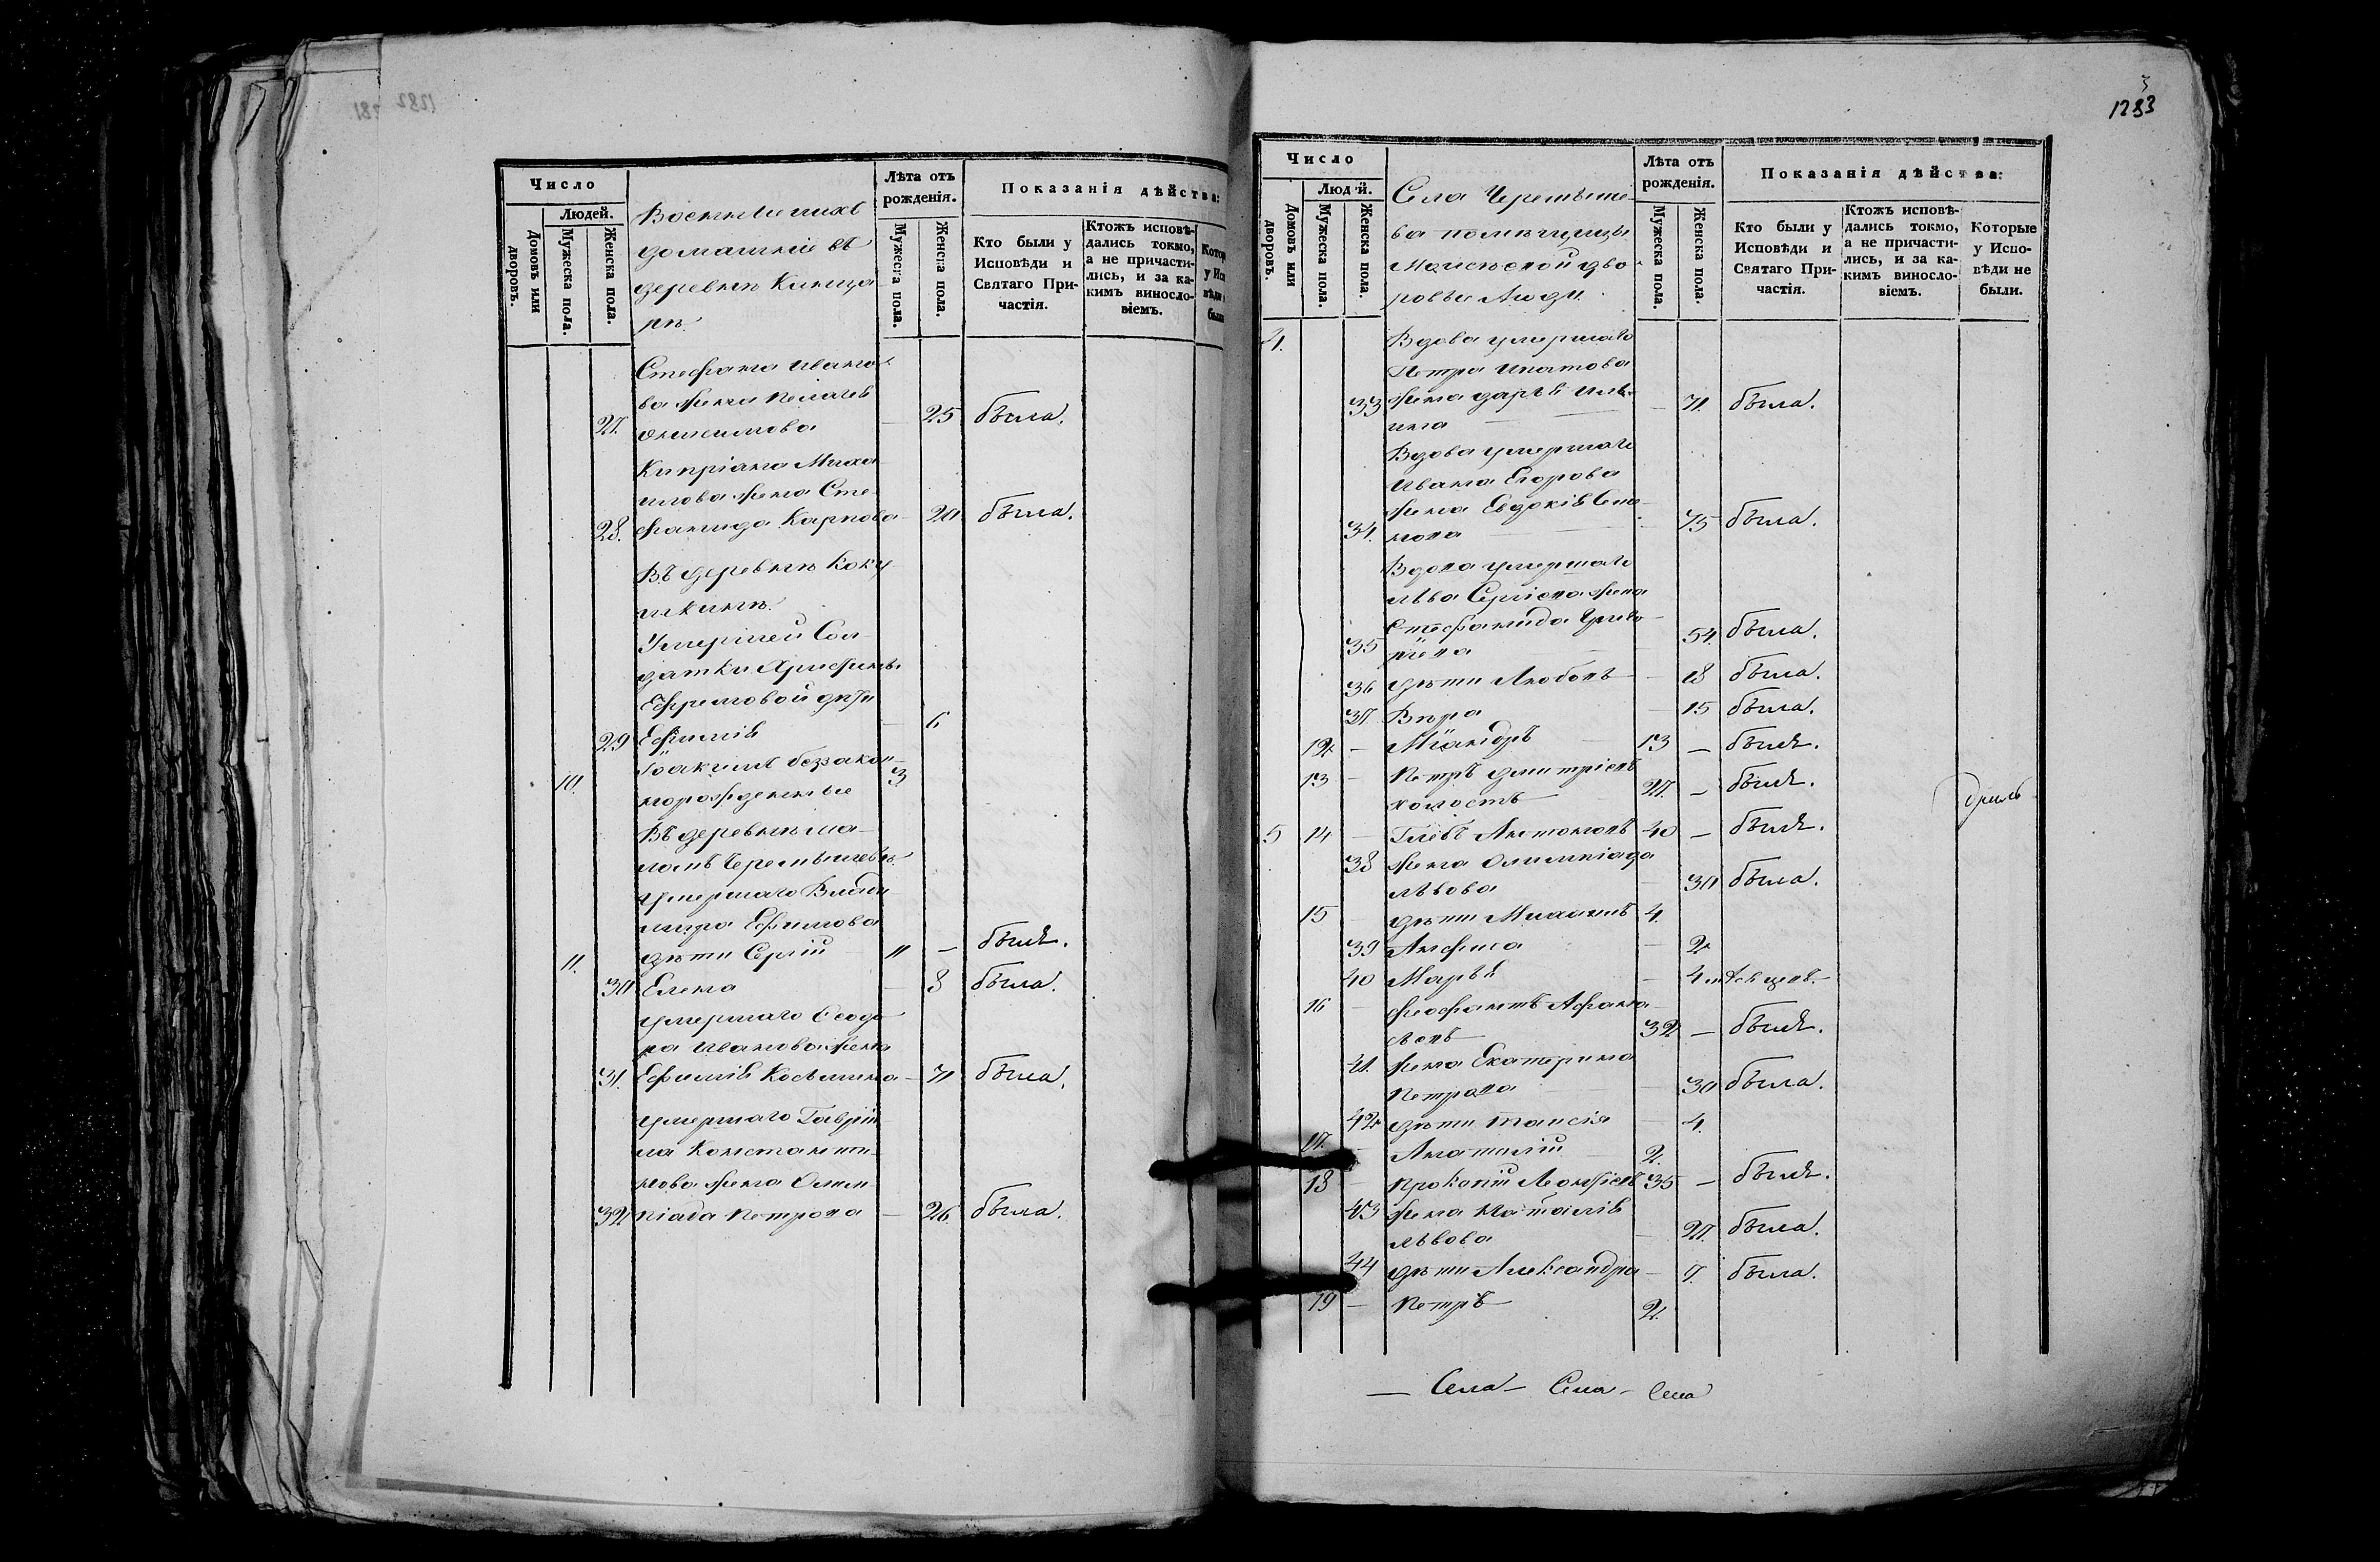 Число
Людей.
Домовъ или дворовъ.
Мужеска пола.
Женска пола.
домашніе въ
деревнѣ Кинца
рѣ.
Лѣта отъ рожденія.
Мужеска пола.
Женска пола.
Показанія дѣйства:
Кто были у Исповѣди и Святаго Причастія.
Ктожъ исповѣдались токмо, а не причастились, и за какимъ винословіемъ.
Стефана Ивано-
ва жена Пелагея
27. Онисимова — 25 была.
Кипріана Миха
илова жена Сте-
28. фанида Карпова — 20 была.
Въ деревнѣ Коку
шкинѣ.
Умершей Сол-
датки
Ефремовой дѣти
29 Ефимія — 6
10. Іоакимъ беззакон- 3.
норожденные
Въ деревнѣ ма-
ломъ Черемышевѣ.
умершаго Влади-
мира Ефимова
11. дѣти Сергій 11 — былъ.
30 Елена — 8 была.
умершаго Ѳеодо
ра Иванова жена
31. Ефимія Косьмина — 71 была.
умершаго Гаврі
ла Константи-
нова жена Олим-
32 піада Петрова — 26. была.
3
1283
Число
Людей.
Домовъ или дворовъ.
Мужеска пола.
Женска пола.
Села Черемыше-
ва помѣщицы
дво
ровые Люди.
Лѣта отъ рожденія.
Мужеска пола.
Женска пола.
Показанія дѣйства:
Кто были у Исповѣди и Святаго Причастія.
Ктожъ исповѣдались токмо, а не причастились, и за какимъ винословіемъ.
Которые у Исповѣди не были.
4. Вдова умершаго
Петра Ипатова
33 жена Дарья Иль- — 71. была.
ина
Вдова умершаго
Ивана Егорова
34. жена Евдокія — 75 была.
Вдова умершаго
Льва Сергіева жена
35 Стефанида Григо- 54. была.
ріева
36 дѣти Любовь — 18 была.
37 Вѣра — 15 была.
12 — 13 — былъ.
13 — Петръ Дмитріевъ 27. — былъ.
холостъ
5 14 — Глебъ Антоновъ 40 — былъ.
38 жена Олимпіада
Львова — 30 была.
15 дѣти Михаилъ 4.
39 Анфиса — 2
40 Марья — 4 мѣсяцевъ.
16 — Феофантъ Афана-
сьевъ 32 — былъ.
41. жена Екатерина
Петрова — 30 была.
42 дѣти Таисія — 4.
17. — Анатолій 2.
18 — Прокопій 35 — былъ.
43 жена Наталія
Львова — 27. была.
44 дѣти Александра — 7. была.
19 — Петръ 2.
— Села — Села — Села